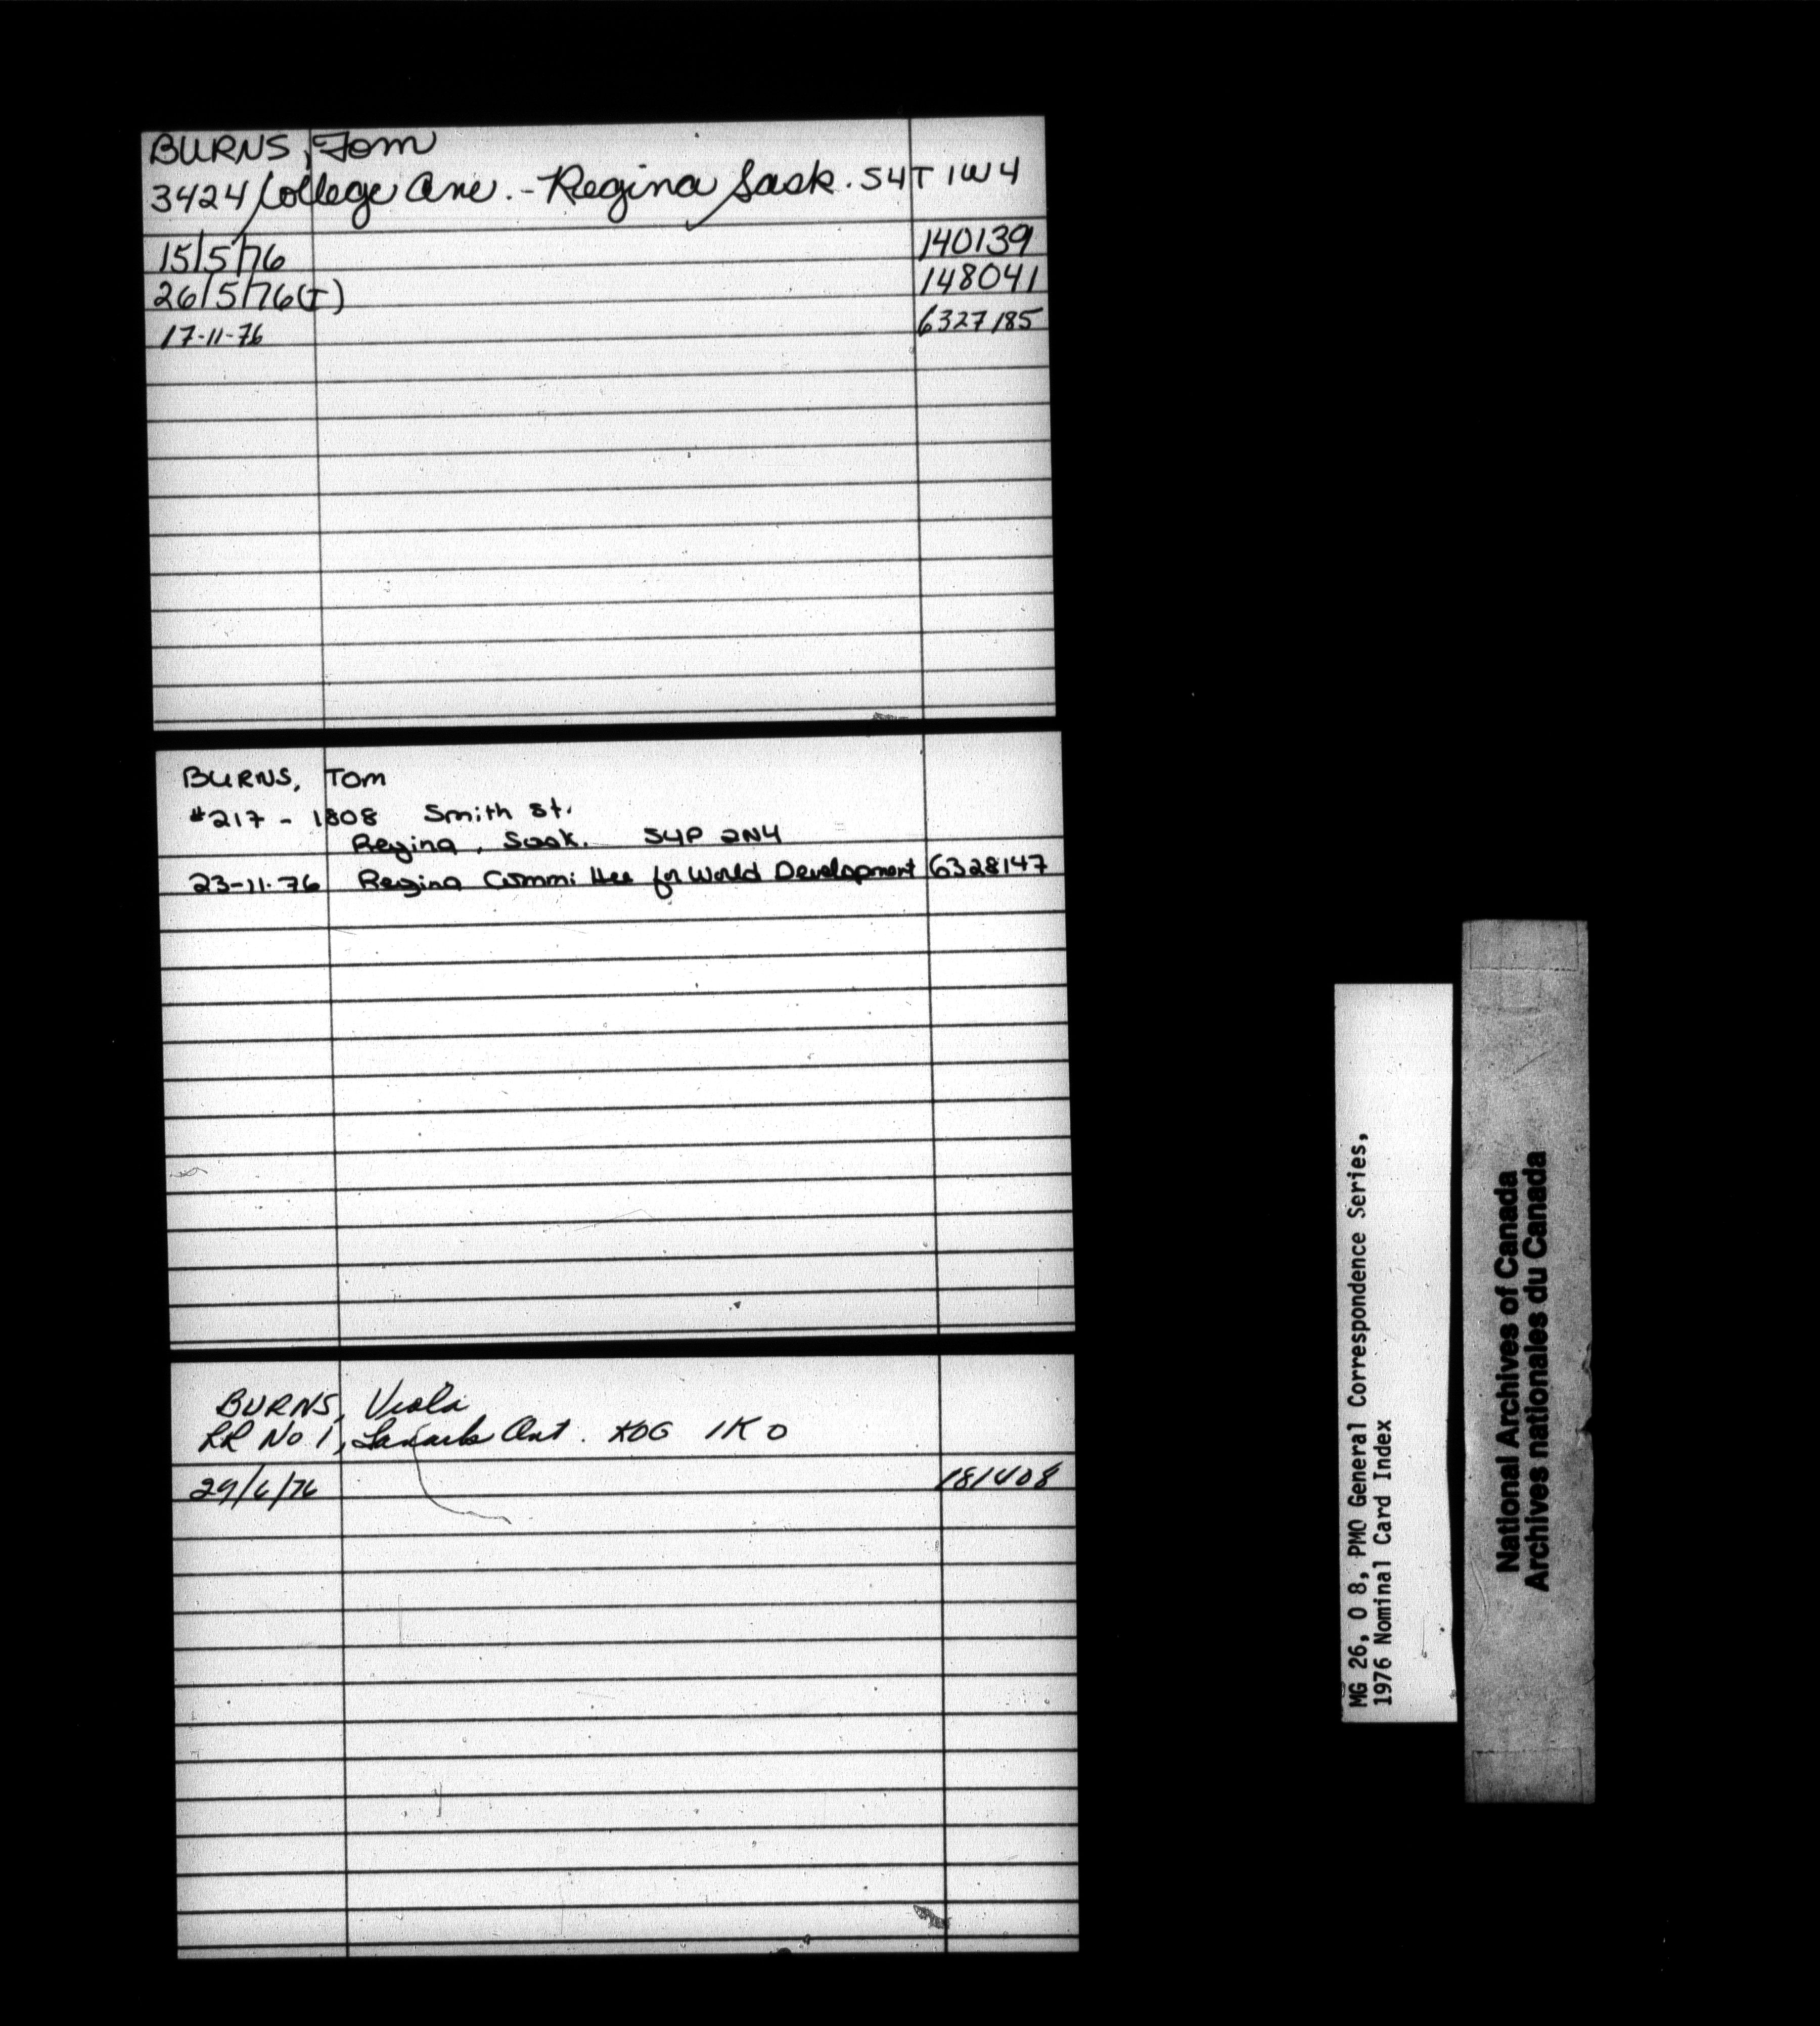 BURNS, Tom
3424 College Ave. - Regina Sask. S4T 1W4
15/5/76 140139
26/5/76(T) 148041
17-11-76 6327185
BURNS, Tom
#217 - 1808 Smith St.
Regina, Sask. S4P 2N4
23-11-76 Regina Committee for World Development 6328147
BURNS, Viola
RR No 1, Lanark Ont. K0G 1K0
29/6/76 181408
MG 26, O 8, PMO General Correspondence Series,
1976 Nominal Card Index
National Archives of Canada
Archives nationales du Canada